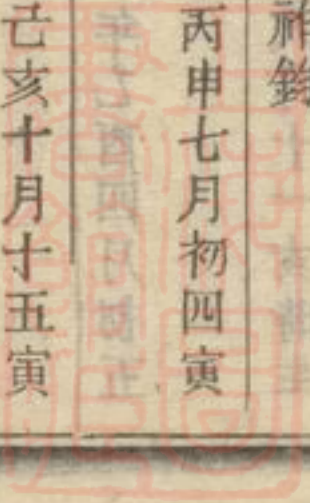 祚鈞
丙申七月初四寅
己亥十月十五寅